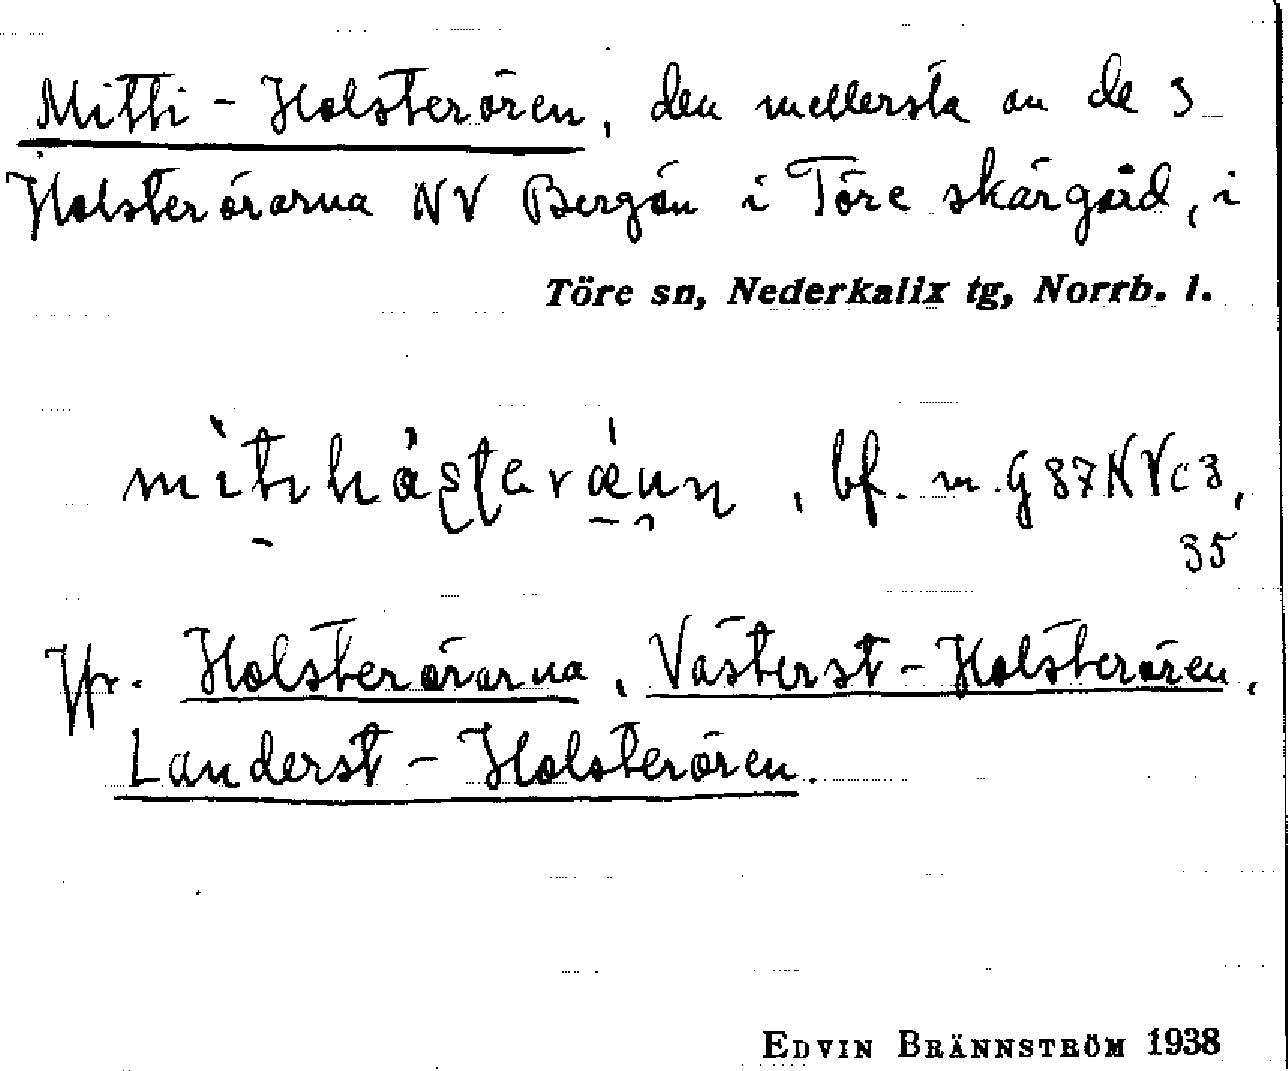 Mitti-Holsterören, den mellersta av de 3
Holsterörarna NV Bergön i Töre skärgård, i
Töre sn, Nederkalix tg, Norrb. l.
bf. m. G 87 NV c 3,
35
Jfr. Holsterörarna, Västerst-Holsterören,
Landerst-Holsterören.
EDVIN BRÄNNSTRÖM 1938